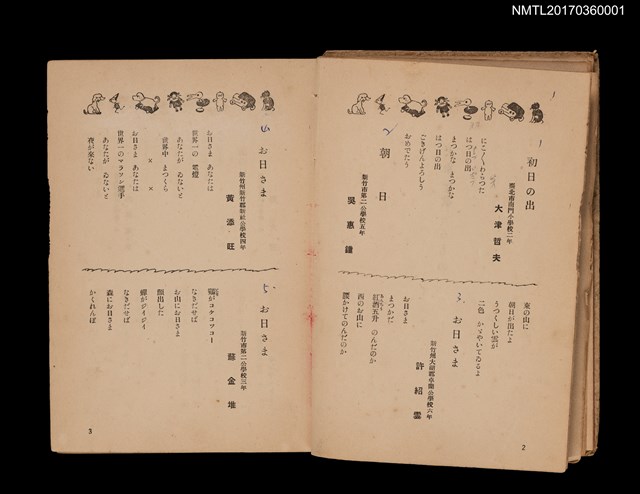 NMTL20170360001
初日の出
臺北市南門小學校二年
大津哲夫
にこ〳〵わらつた
はつ日の出
とつかな まつかな
はつ日の出
ごきげんよろしう
おめでたう
朝日
新竹市第二公學校五年
吳惠謙
東の山に
朝日が出たよ
うつくしい雲が
二色 かゞやいてゐるよ
お日さま
新竹州大湖郡卓蘭公學校六年
許紹雲
お日さま
まつかだ
紅酒五升 のんだのか
西のお山に
腰かけてのんだのか
2
お日さま
新竹州新竹郡新社公學校四年
黃添旺
お日さま あなたは
世界一の 電燈
あなたが ゐないと
世界中 まつくら
× ×
お日さま あなたは
世界一のマラソン選手
あなたが ゐないと
夜が來ない
お日さま
新竹市第二公學校三年
蘇金堆
鷄がコケコツコー
なきだせば
お山にお日さま
顏出した
蟬がジイジイ
なきだせば
森にお日さま
かくれんぼ
3